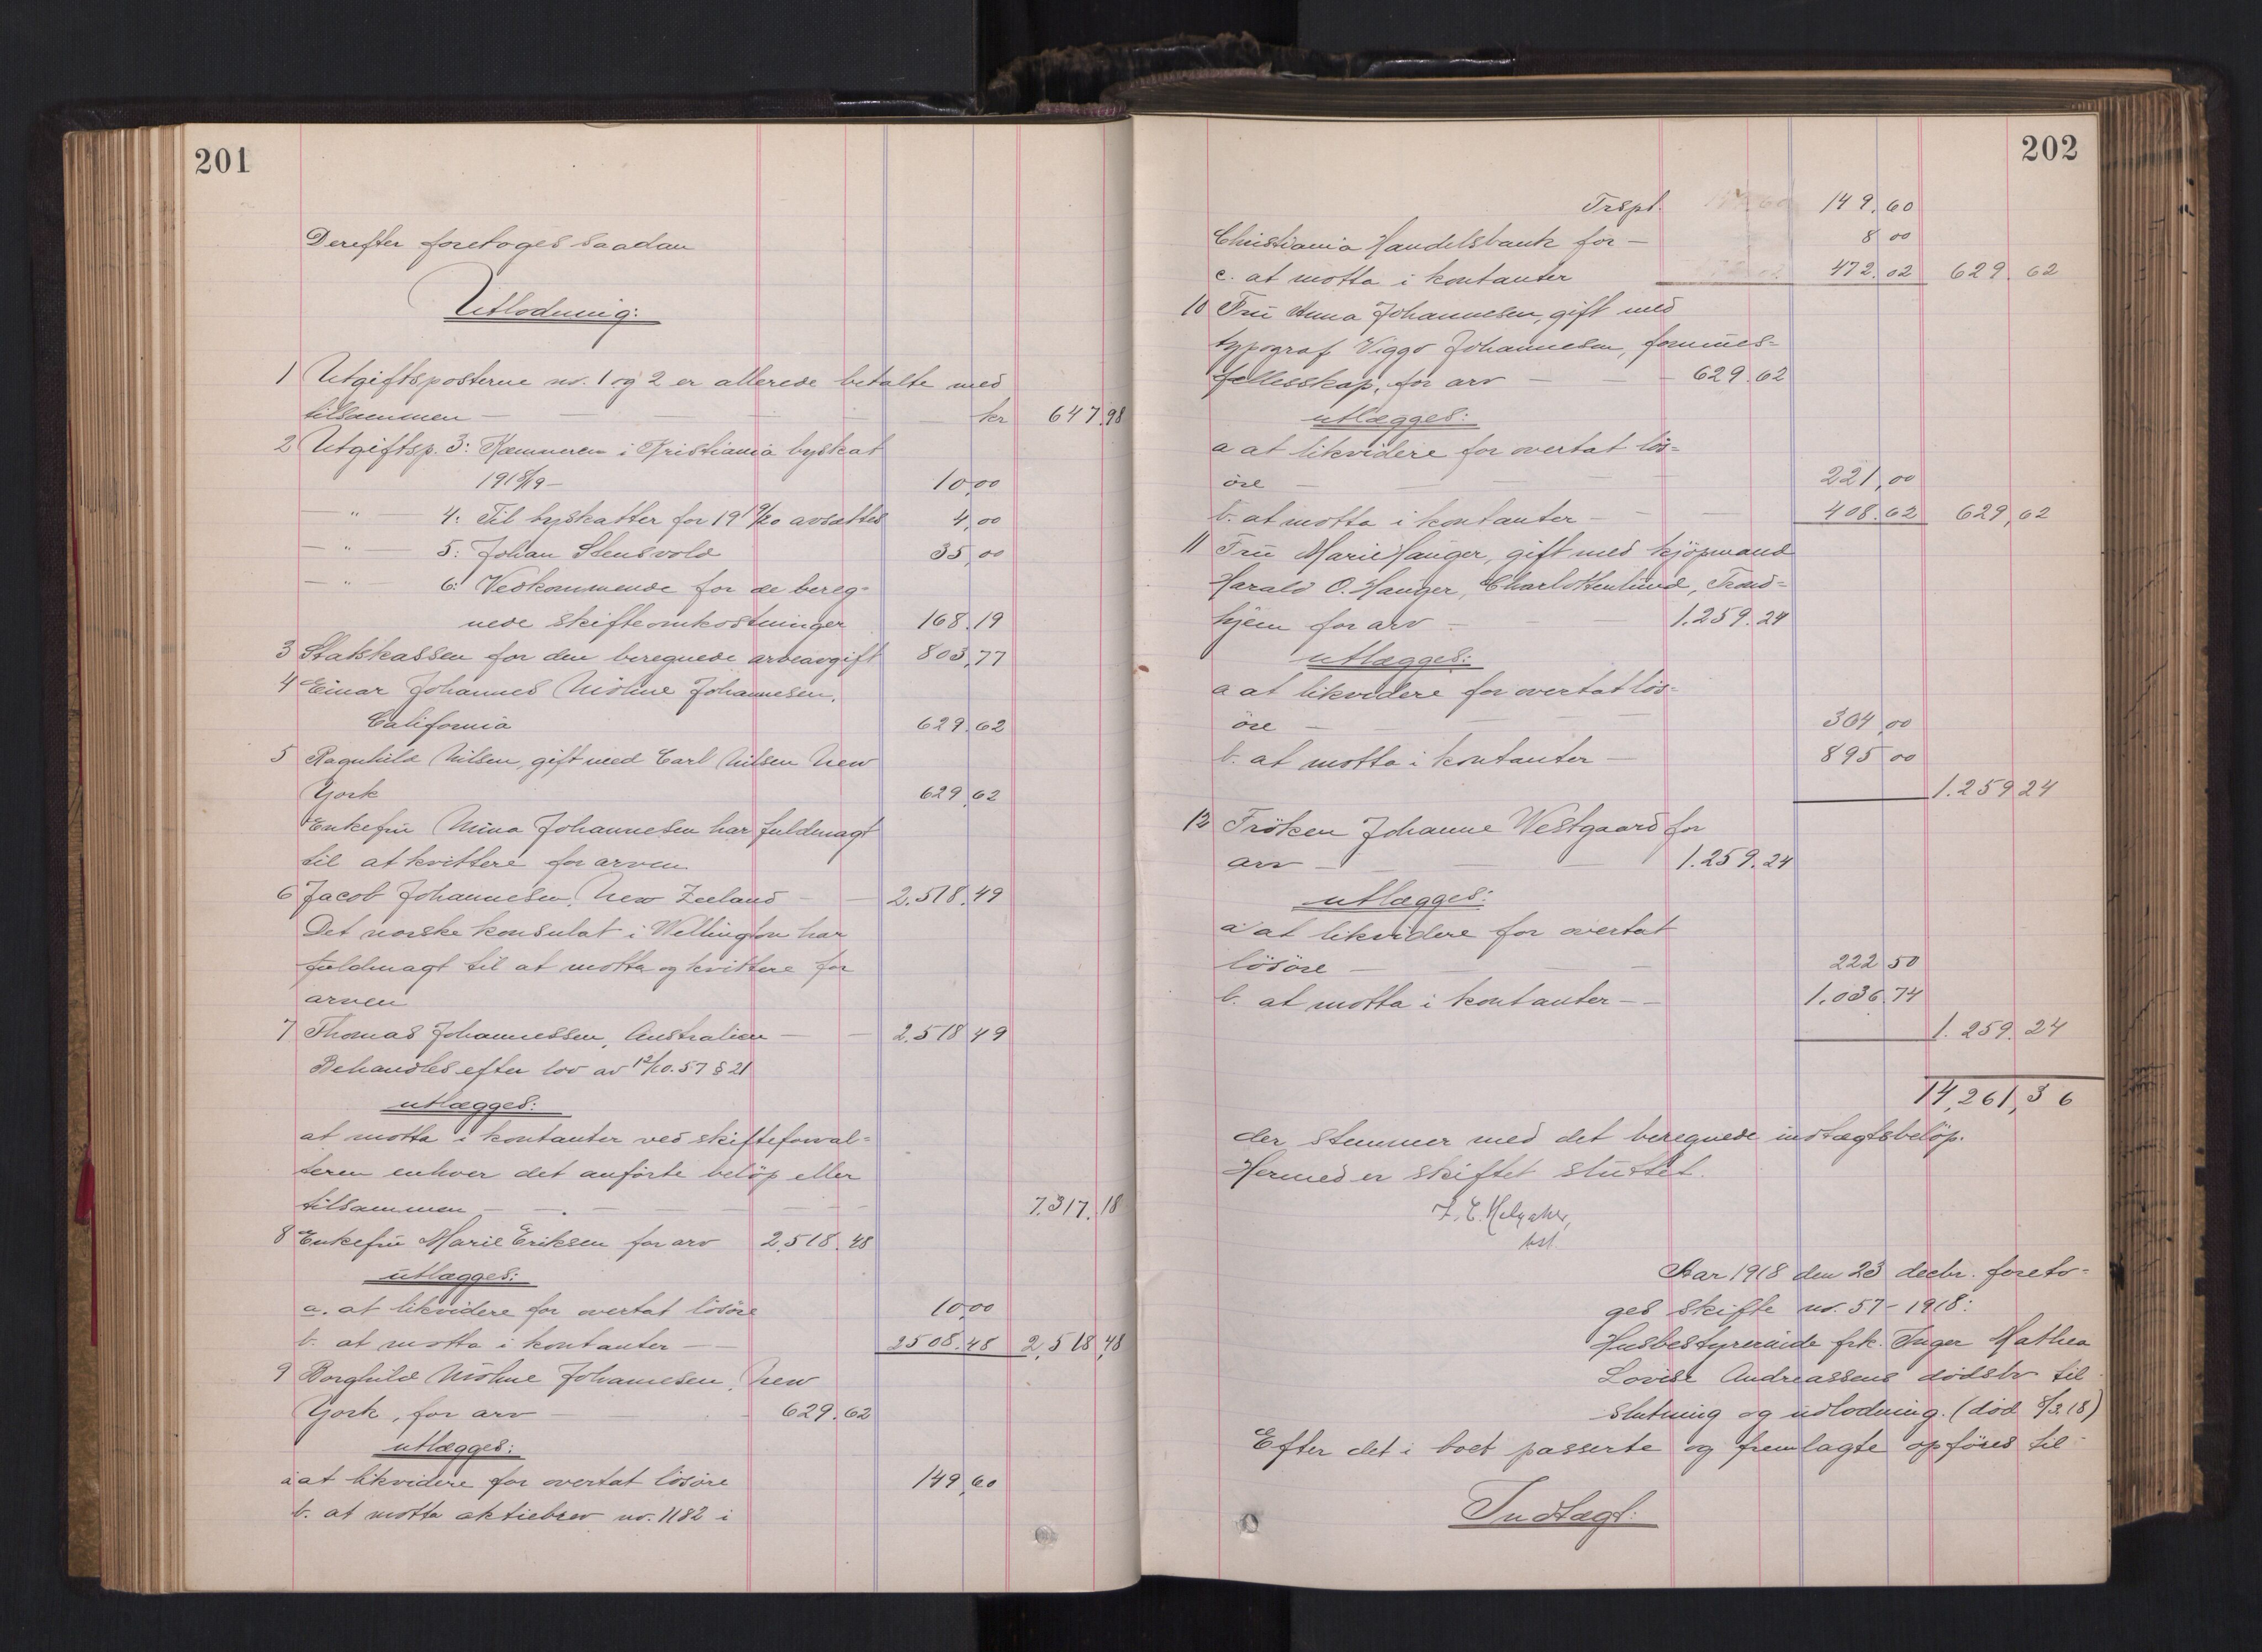 201
Derefter foretoges saadan
Utlodning:
1 Utgiftsposterne nr. 1 og 2 er allerede betalte med
tilsammen — kr 647.98
2 Utgiftsp. 3: Kæmneren i Kristiania byskat
1918/19 — 10,00
— " — 4: Til byskatter for 1919/20 avsættes 4,00
— " — 5: Johan Stensvold 35,00
— " — 6: Vedkommende for de bereg=
nede skifteomkostninger 168.19
3 Statskassen for den beregnede arveavgift 803,77
4 Einar Johannes Möhne Johannesen,
California 629.62
5 Ragnhild Nilsen, gift med Carl Nilsen New
York 629,62
Enkefru Mina Johannesen har fuldmagt
til at kvittere for arven
6 Jacob Johannesen, New Zeeland — 2.518.49
Det norske konsulat i Wellington har
fuldmagt til at motta og kvittere for
arven
7 Thomas Johannessen, Australien — 2.518 49
Behandles efter lov av 12/10.57 § 21
utlægges:
at motta i kontanter ved skifteforval=
teren enhver det anförte belöp eller
tilsammen — 7.317.18
8 Enkefru Marie Eriksen for arv 2,518.48
utlægges:
a. at likvidere for overtat lösöre 10,00
b. at motta i kontanter — 2508.48 2,518,48
9 Borghild Möhne Johannesen, New
York, for arv — 629.62
utlægges:
a at likvidere for overtat lösöre 149,60
b. at motta aktiebrev nr. 1182 i
202
Trspt. 149.60
Christiania Handelsbank for — 8 00
c. at motta i kontanter 472.02 629.62
10 Fru Anna Johannesen, gift med
typograf Viggo Johannesen, formues=
fællesskap, for arv — 629.62
utlægges:
a at likvidere for overtat lös=
öre — 221,00
b. at motta i kontanter — 408.62 629,62
11 Fru Marie Hauger, gift med kjöpmand
Harald O. Hauger, Charlottenlund, Trond=
hjem for arv — 1.259.24
utlægges:
a at likvidere for overtat lös=
öre — 364,00
b. at motta i kontanter — 895 00
1.259 24
12 Fröken Johanne Westgaard for
arv — 1.259.24
utlægges:
a at likvidere for overtat
lösöre — 222 50
b. at motta i kontanter — 1.036.74
1.259.24
14,261,36
der stemmer med det beregnede indtægtsbelöp.
Hermed er skiftet sluttet.
Aar 1918 den 23 decbr. foreto=
ges skifte nr. 57-1918:
Husbestyrerinde frk. Inger Mathea
Lovise Andreassens dödsbo til
slutning og udlodning. (död 8/3.18)
Efter det i boet passerte og fremlagte opföres til
Indtægt: